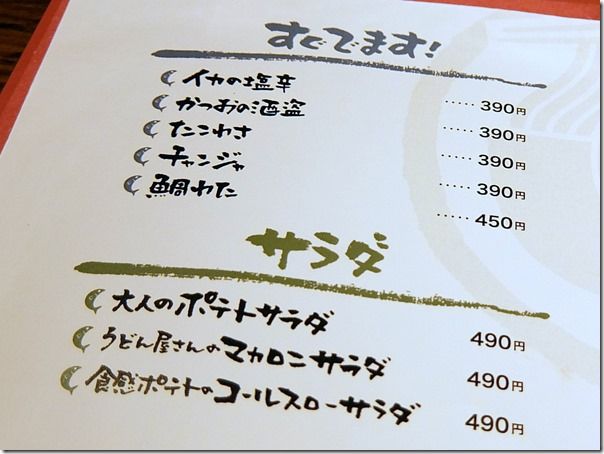 すぐでます!
イカの塩辛 ‥‥‥ 390円
かつおの酒盗 ‥‥‥ 390円
たこわさ ‥‥‥ 390円
チャンジャ ‥‥‥ 390円
鯛わた ‥‥‥ 450円
サラダ
大人のポテトサラダ 490円
うどん屋さんのマカロニサラダ 490円
食感ポテトのコールスローサラダ 490円